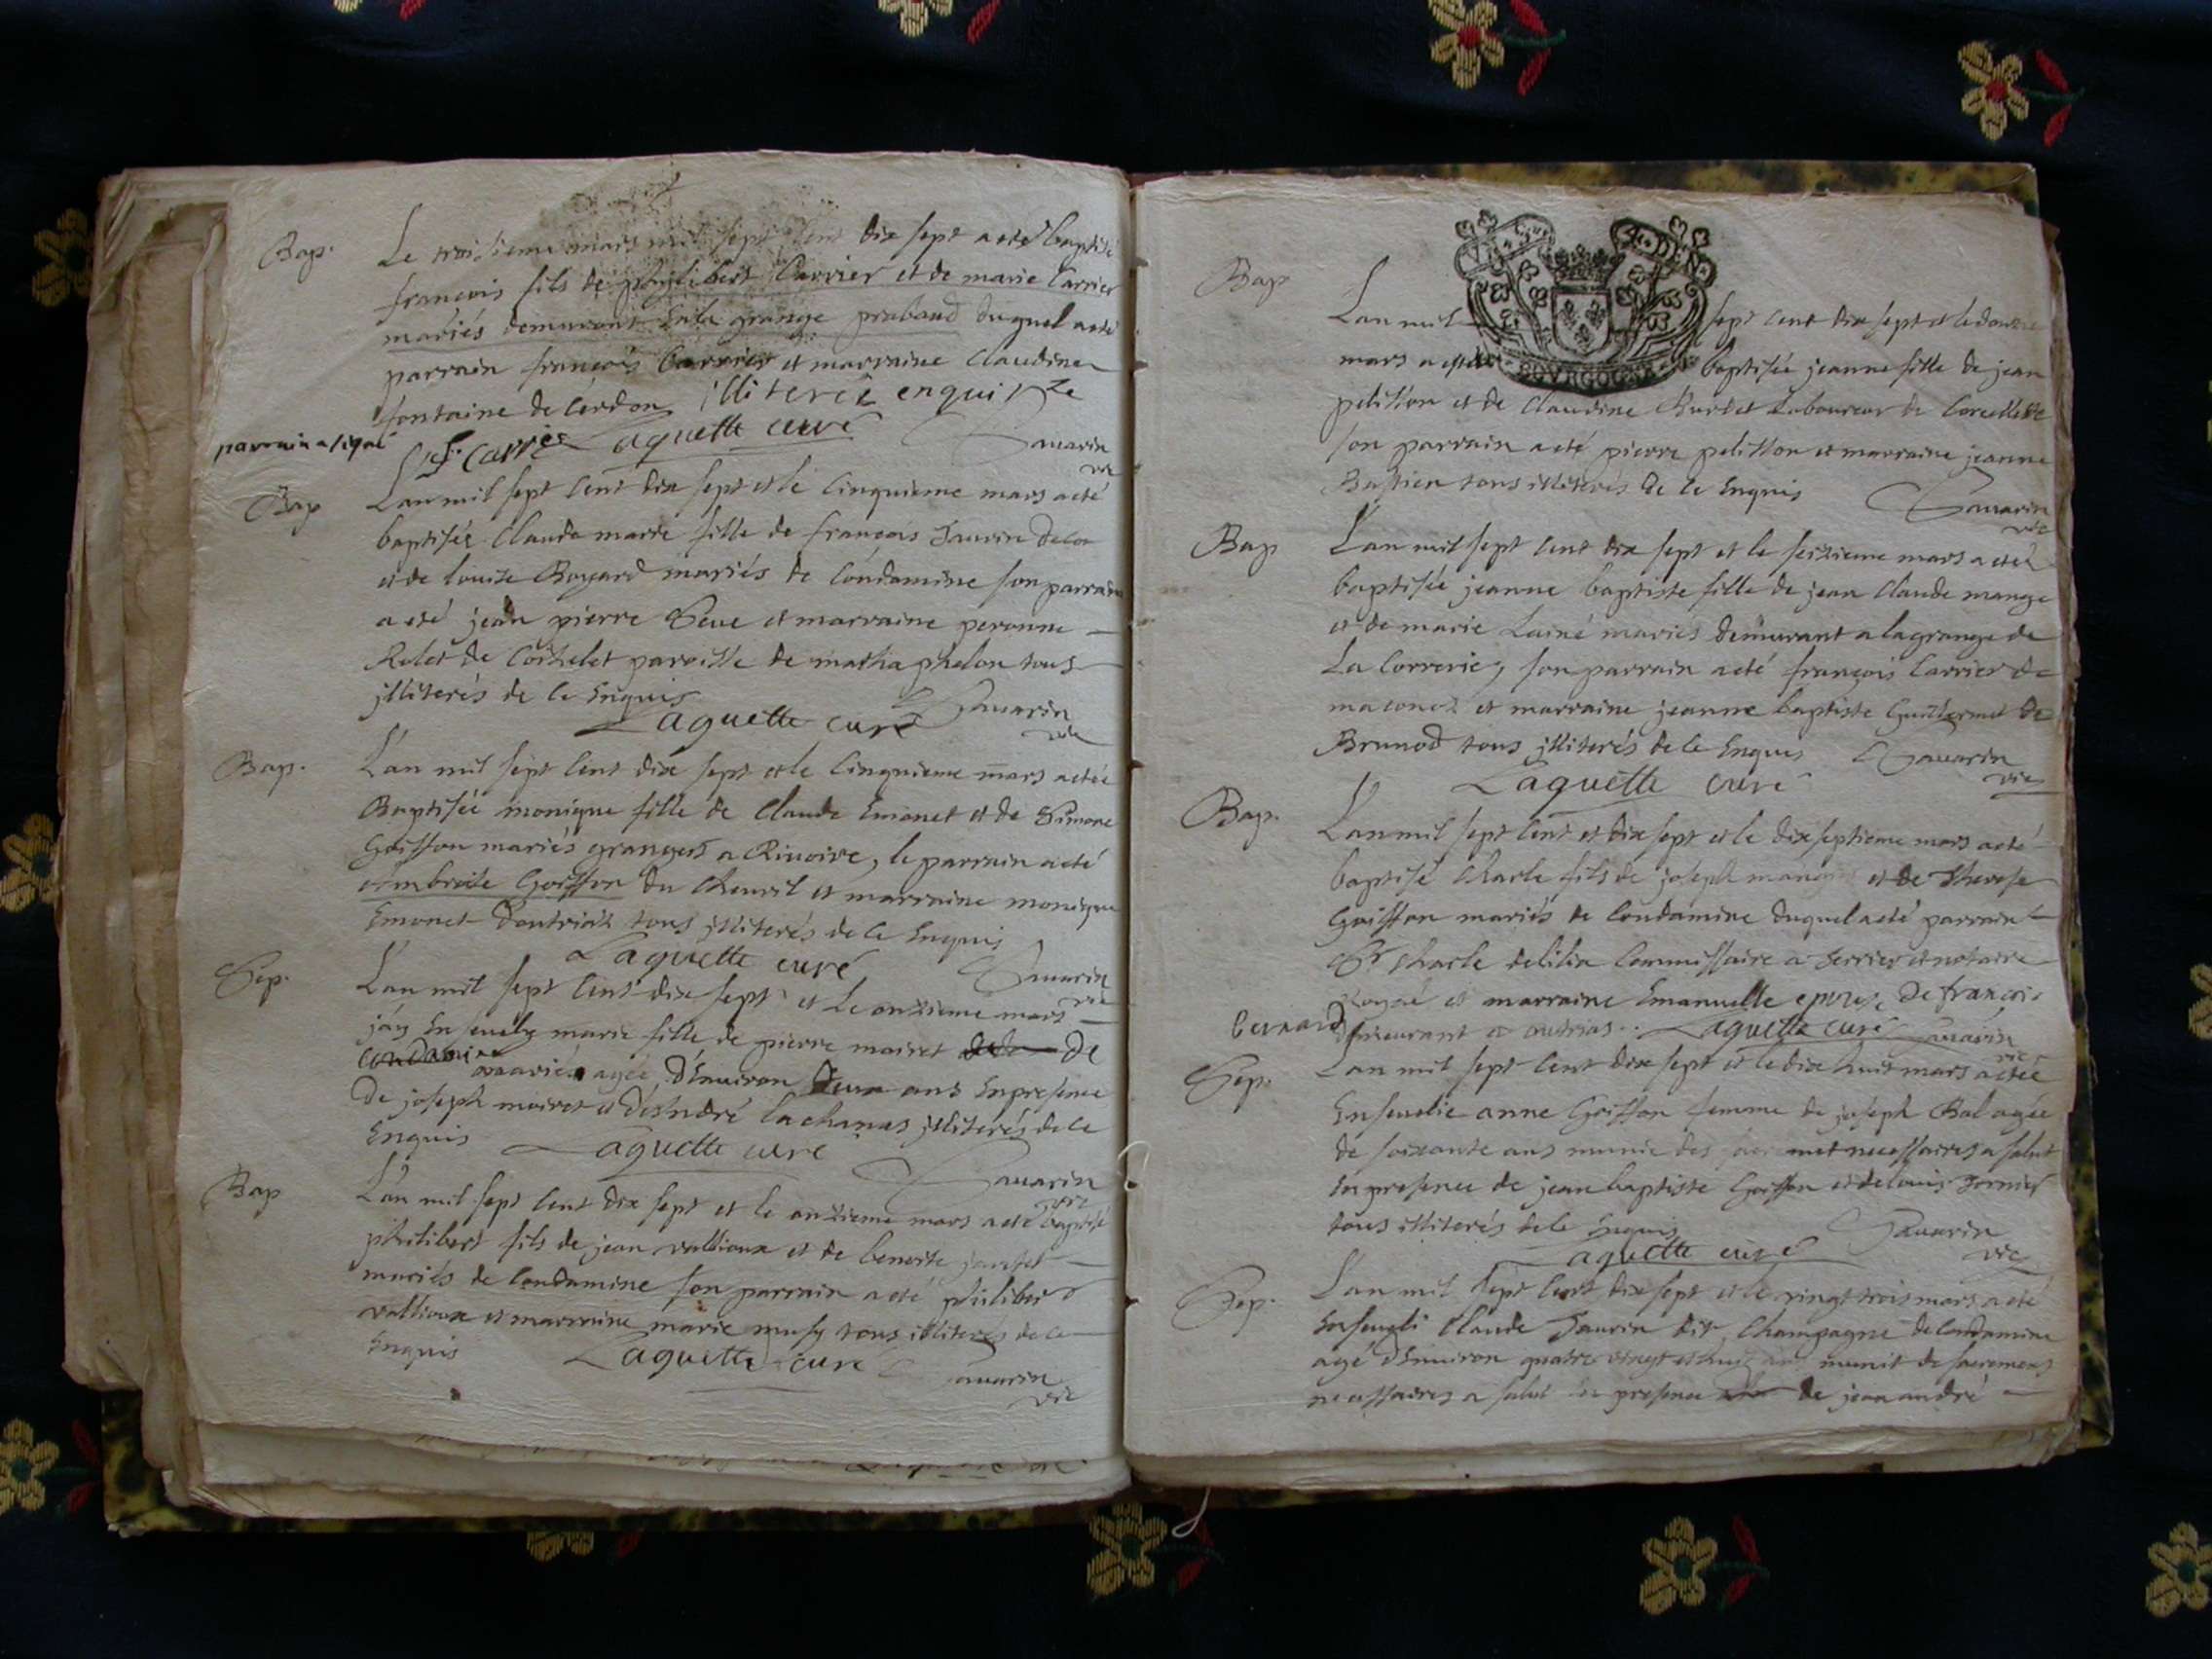 Bap.
Le troisieme mars mil sept cent dix sept a eté baptisé
francois fils de philibert Carrier et de marie Carrier
mariés demeurant en la grange prabaud duquel a eté
parrain françois Carrier et marraine Claudine
fontaine de Cerdon illiteree enquise
parrain a signé
f. Carrier Laguette curé Savarin
vic
Bap
L'an mil sept cent dix sept et le cinquieme mars a eté
baptisée Claude marie fille de françois Tavrin
et de louise Bogard mariés de Condamine son parrain
a eté jean pierre Seve et marraine peronne
Rolet de Corselet paroisse de mathaphelon tous
illiterés de ce enquis
Laguette curé Savarin
vic
Bap.
L'an mil sept cent dix sept et le cinquieme mars a etée
Baptisée monique fille de Claude Emonet et de Simone
Goiffon mariés grangers a Rivoire, le parrain a eté
Ambroise Goiffon du Chenavil et marraine monique
Emonet d'outriaz tous illiterés de ce enquis
Laguette curé Savarin
vic
Sep.
L'an mil sept cent dix sept et le onzieme mars
jáy ensevely marie fille de pierre moiret de
condamine mariés agée d'environ deux ans en presence
de joseph moiret et d'André Lachanas illiterés de ce
enquis Laguette curé
Savarin
vic
Bap
L'an mil sept cent dix sept et le onzieme mars a eté baptisé
philibert fils de jean vallioux et de benoite
mariés de Condamine son parrain a eté philibert
vallioux et marraine marie musy tous illiterés de ce
enquis Laguette curé Savarin
vic
Bap
VI A.DEN.
L'an mil sept cent dix sept et le douze
mars a eté baptisée jeanne fille de jean
BOURGOGNE
pelisson et de Claudine laboureur de Corcelle
son parrain a eté pierre pelisson et marraine jeanne
Bastien tous illiterés de ce enquis Savarin
vic
Bap
L'an mil sept cent dix sept et le seizieme mars a eté
baptisée jeanne baptiste fille de jean Claude mange
et de marie Lainé mariés demeurant a la grange de
La Correrie, son parrain a eté françois Carrier de
maconoz et marraine jeanne baptiste Guillermet de
Brunod tous illiterés de ce enquis Savarin
Laguette curé vic
Bap.
L'an mil sept cent et dix sept et le dix septieme mars a eté
baptisé Charle fils de joseph et de Therese
Goiffon mariés de Condamine duquel a eté parrain
Sr Charle delilia Commissaire a Terrier et notaire
Royal et marraine Emanuelle epouse de francois
bernard demeurant a outrias Laguette curé Savarin
vic
Sep.
L'an mil sept cent dix sept et le dix huit mars a etée
ensevelie anne Goiffon femme de joseph Bal agée
de soixante ans munie des necessaires a salut
en presence de jean baptiste Goiffon et de louis Tornier
tous illiterés de ce enquis Savarin
Laguette curé vic
Sep.
L'an mil sept cent dix sept et le vingt trois mars a eté
enseveli Claude Tavrin dit Champagne de Condamine
agé d'environ quatre vingt et huit ans munit de sacremens
necessaires a salut en presence de jean andré